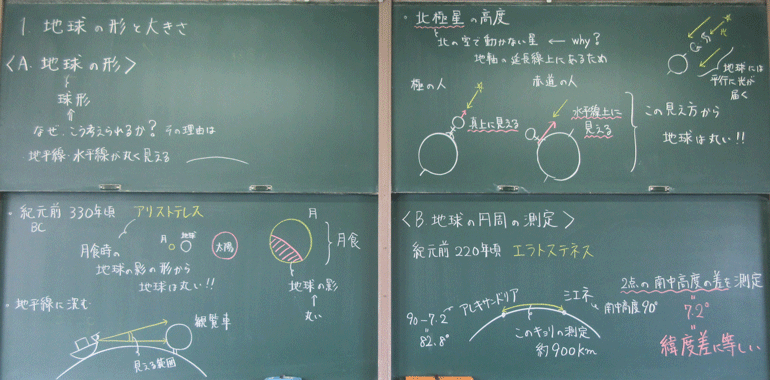 1. 地球の形と大きさ
〈A. 地球の形〉
球形
なぜ、こう考えられるか? その理由は
地平線・水平線が丸く見える
・紀元前330年頃 アリストテレス
BC
月食時の
地球の影の形から
地球は丸い!!
月
地球
太陽
月
月食
地球の影
丸い
・地平線に沈む
観覧車
見える範囲
・北極星の高度
北の空で動かない星 ← why?
地軸の延長線上にあるため
極の人
真上に見える
赤道の人
水平線上に
見える
この見え方から
地球は丸い!!
光
地球には
平行に光が
届く
〈B. 地球の円周の測定〉
紀元前220年頃 エラトステネス
アレキサンドリア
シエネ
90-7.2
"
82.8°
南中高度90°
このキョリの測定
約900km
2点の南中高度の差を測定
"
7.2°
"
緯度差に等しい